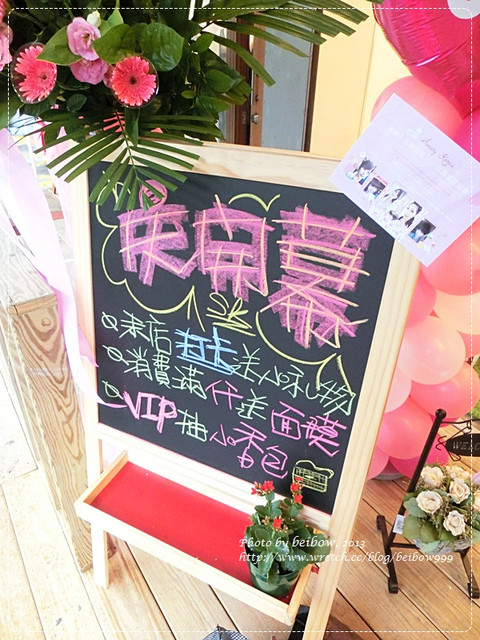 慶開幕
來店打卡送小禮物
消費滿仟送面膜
VIP抽小香包
Photo by beibow, 2013
http://www.wretch.cc/blog/beibow999